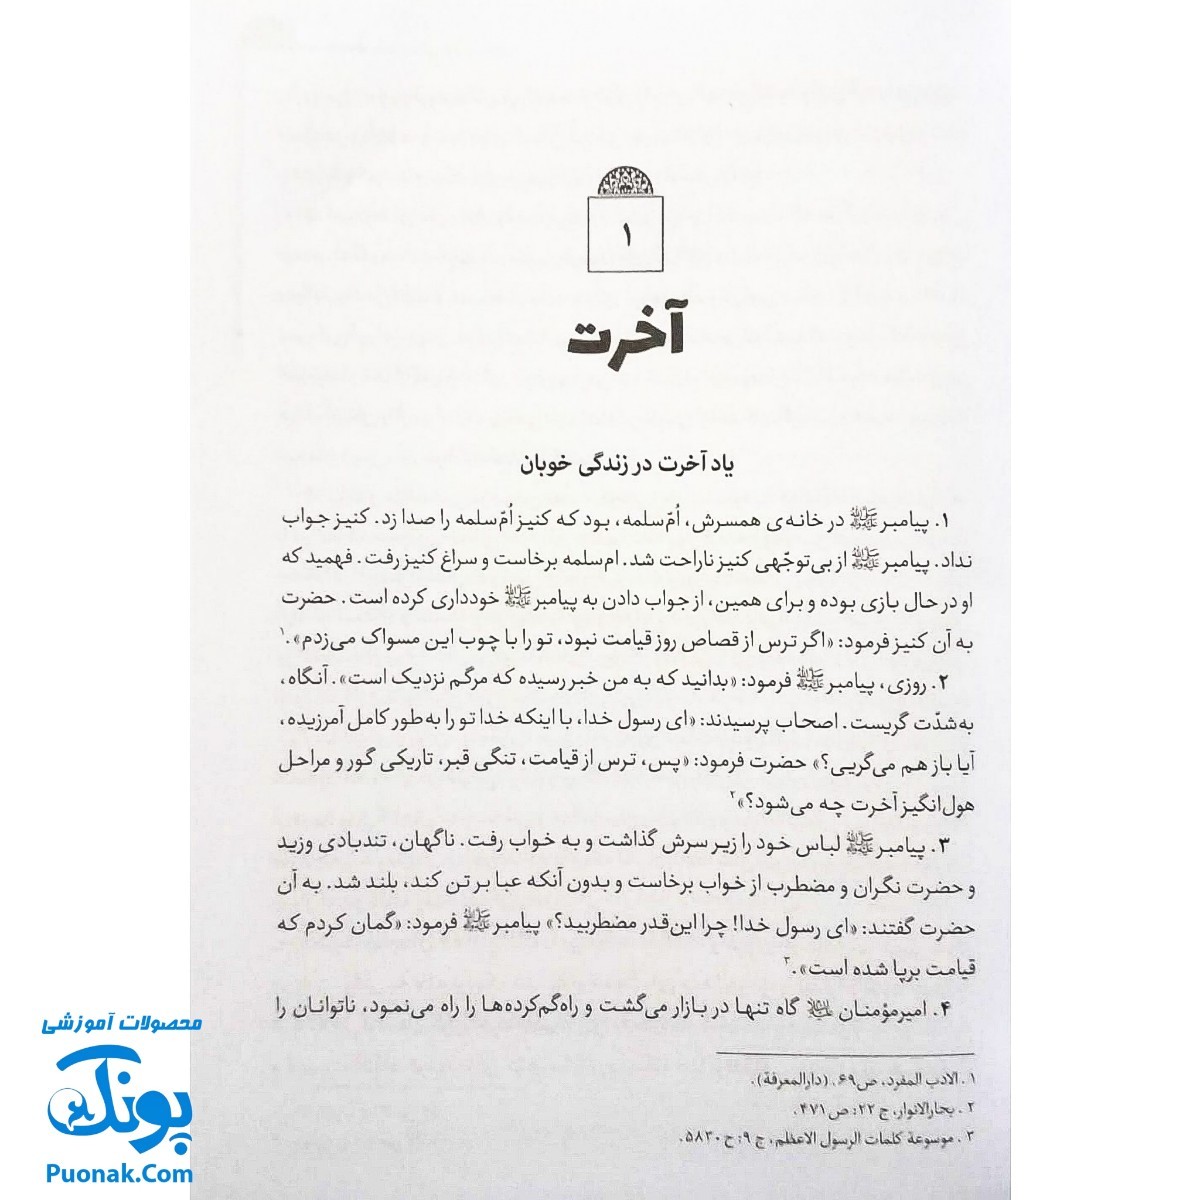 ۱
آخرت
یاد آخرت در زندگی خوبان
۱. پیامبر ﷺ در خانه‌ی همسرش، اُمّ‌سلمه، بود که کنیز اُمّ‌سلمه را صدا زد. کنیز جواب
نداد. پیامبر ﷺ از بی‌توجّهی کنیز ناراحت شد. ام‌سلمه برخاست و سراغ کنیز رفت. فهمید که
او در حال بازی بوده و برای همین، از جواب دادن به پیامبر ﷺ خودداری کرده است. حضرت
به آن کنیز فرمود: «اگر ترس از قصاص روز قیامت نبود، تو را با چوب این مسواک می‌زدم».۱
۲. روزی، پیامبر ﷺ فرمود: «بدانید که به من خبر رسیده که مرگم نزدیک است». آنگاه،
به‌شدّت گریست. اصحاب پرسیدند: «ای رسول خدا، با اینکه خدا تو را به‌طور کامل آمرزیده،
آیا باز هم می‌گریی؟» حضرت فرمود: «پس، ترس از قیامت، تنگی قبر، تاریکی گور و مراحل
هول‌انگیز آخرت چه می‌شود؟»۲
۳. پیامبر ﷺ لباس خود را زیر سرش گذاشت و به خواب رفت. ناگهان، تندبادی وزید
و حضرت نگران و مضطرب از خواب برخاست و بدون آنکه عبا بر تن کند، بلند شد. به آن
حضرت گفتند: «ای رسول خدا! چرا این‌قدر مضطربید؟» پیامبر ﷺ فرمود: «گمان کردم که
قیامت برپا شده است».۳
۴. امیرمؤمنان علیه‌السلام گاه تنها در بازار می‌گشت و راه‌گم‌کرده‌ها را راه می‌نمود، ناتوانان را
۱. الادب المفرد، ص۶۹. (دارالمعرفة).
۲. بحارالانوار، ج ۲۲: ص ۴۷۱.
۳. موسوعة کلمات الرسول الاعظم، ج ۹: ح ۵۸۳۰.
محصولات آموزشی
پونک
Puonak.Com